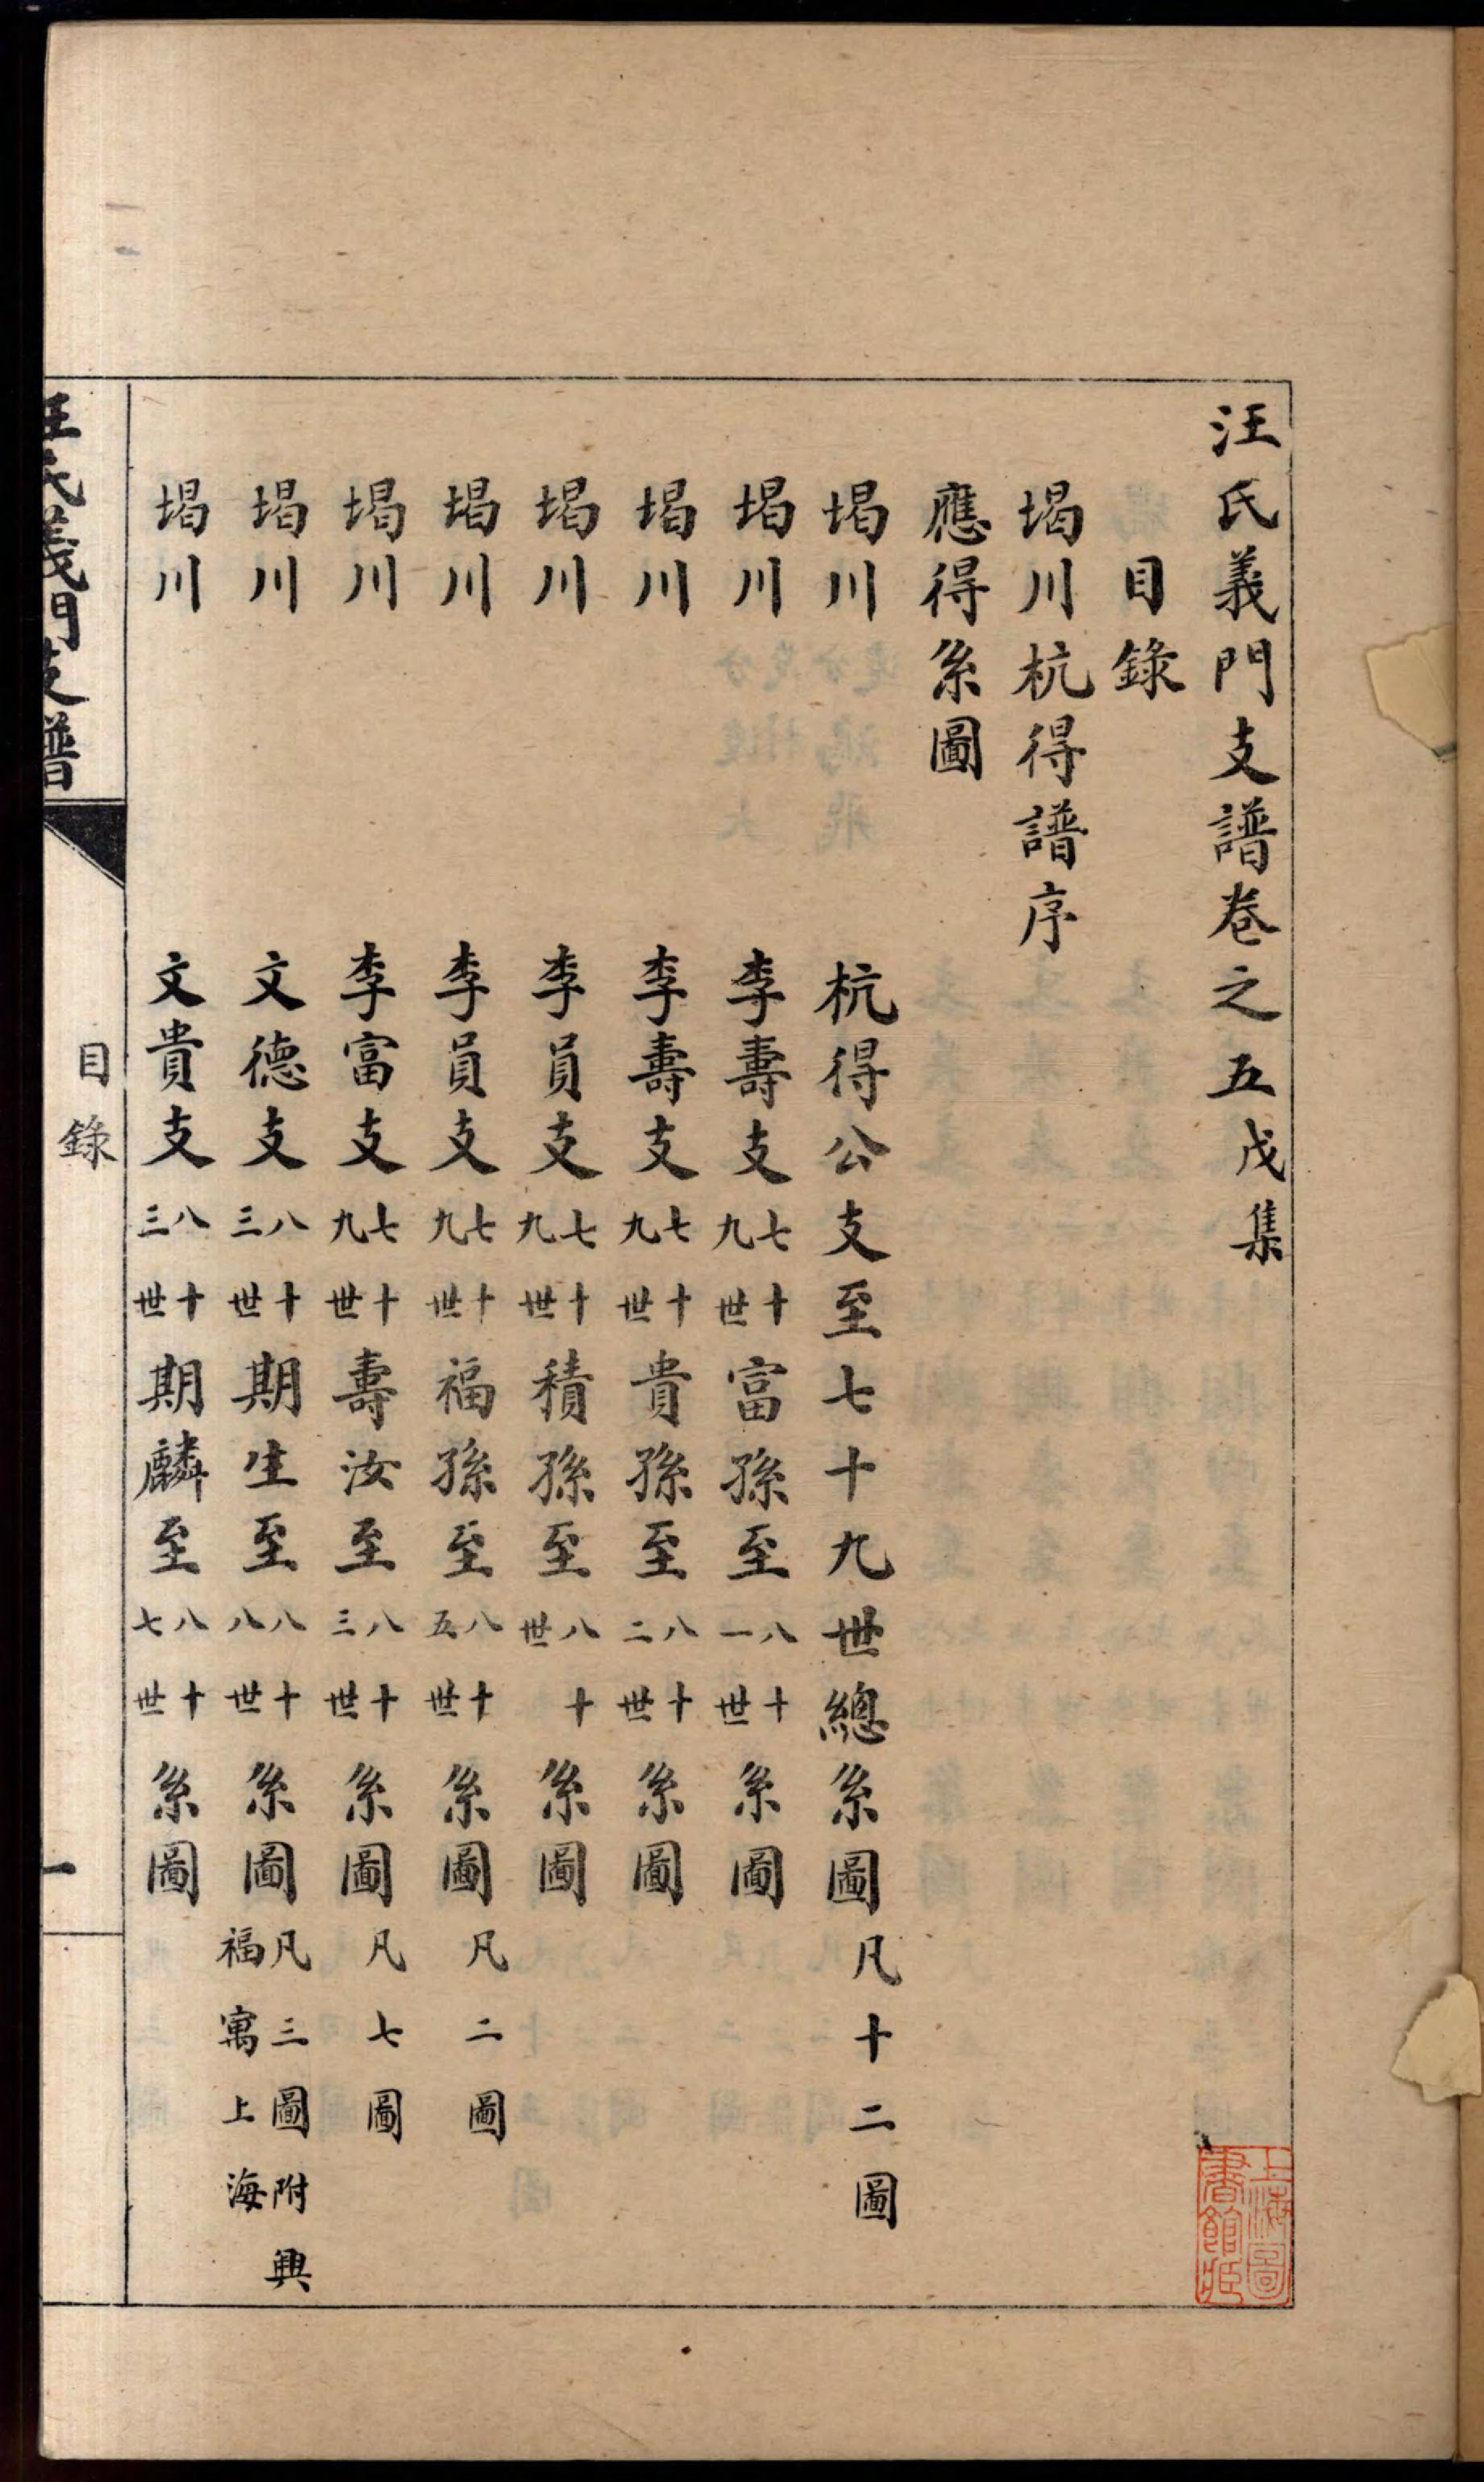 汪氏義門支譜卷之五戊集
目錄
堨川杭得譜序
應得系圖
堨川 杭得公支至七十九世總系圖凡十二圖
堨川 李壽支七十九世富孫至八十一世系圖
堨川 李壽支七十九世貴孫至八十二世系圖
堨川 李員支七十九世積孫至八十世系圖
堨川 李員支七十九世福孫至八十五世系圖凡二圖
堨川 李富支七十九世壽汝至八十三世系圖凡七圖
堨川 文德支八十三世期生至八十八世系圖凡三圖附興福寓上海
堨川 文貴支八十三世期麟至八十七世系圖
汪氏義門支譜 目錄 一
上海圖書館藏